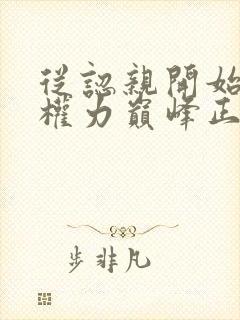 從認親開始
權力巔峰正
步非凡